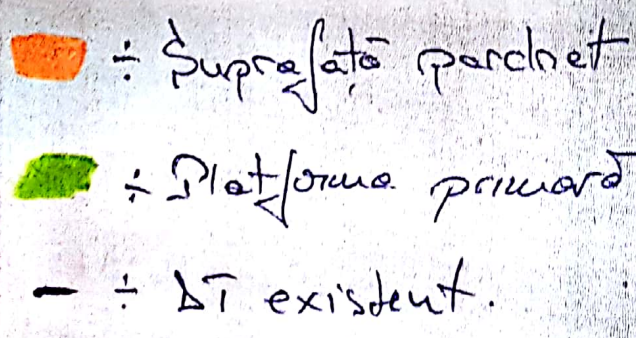 ÷ Suprafață parchet
÷ Platforma primară
÷ DT existent.